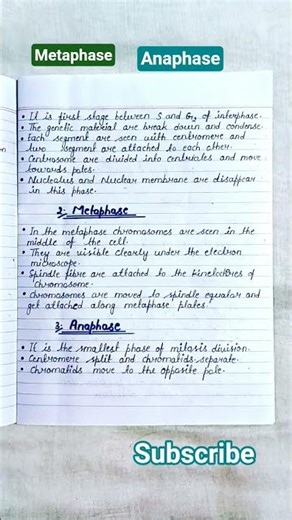 Metaphase
Anaphase
• It is first stage between S and G2 of interphase.
• The genetic material are break down and condense.
• Each segment are seen with centromere and
two segment are attached to each other.
• Centrosome are divided into centrioles and move
towards poles.
• Nucleolus and Nuclear membrane are disappear
in this phase.
2. Metaphase
• In the metaphase chromosomes are seen in the
middle of the cell.
• They are visible clearly under the electron
microscope.
• Spindle fibre are attached to the kinetochores of
chromosome.
• Chromosomes are moved to spindle equator and
get attached along metaphase plates.
3. Anaphase
• It is the smallest phase of mitosis division.
• Centromere split and chromatids separate.
• Chromatids move to the opposite pole.
Subscribe